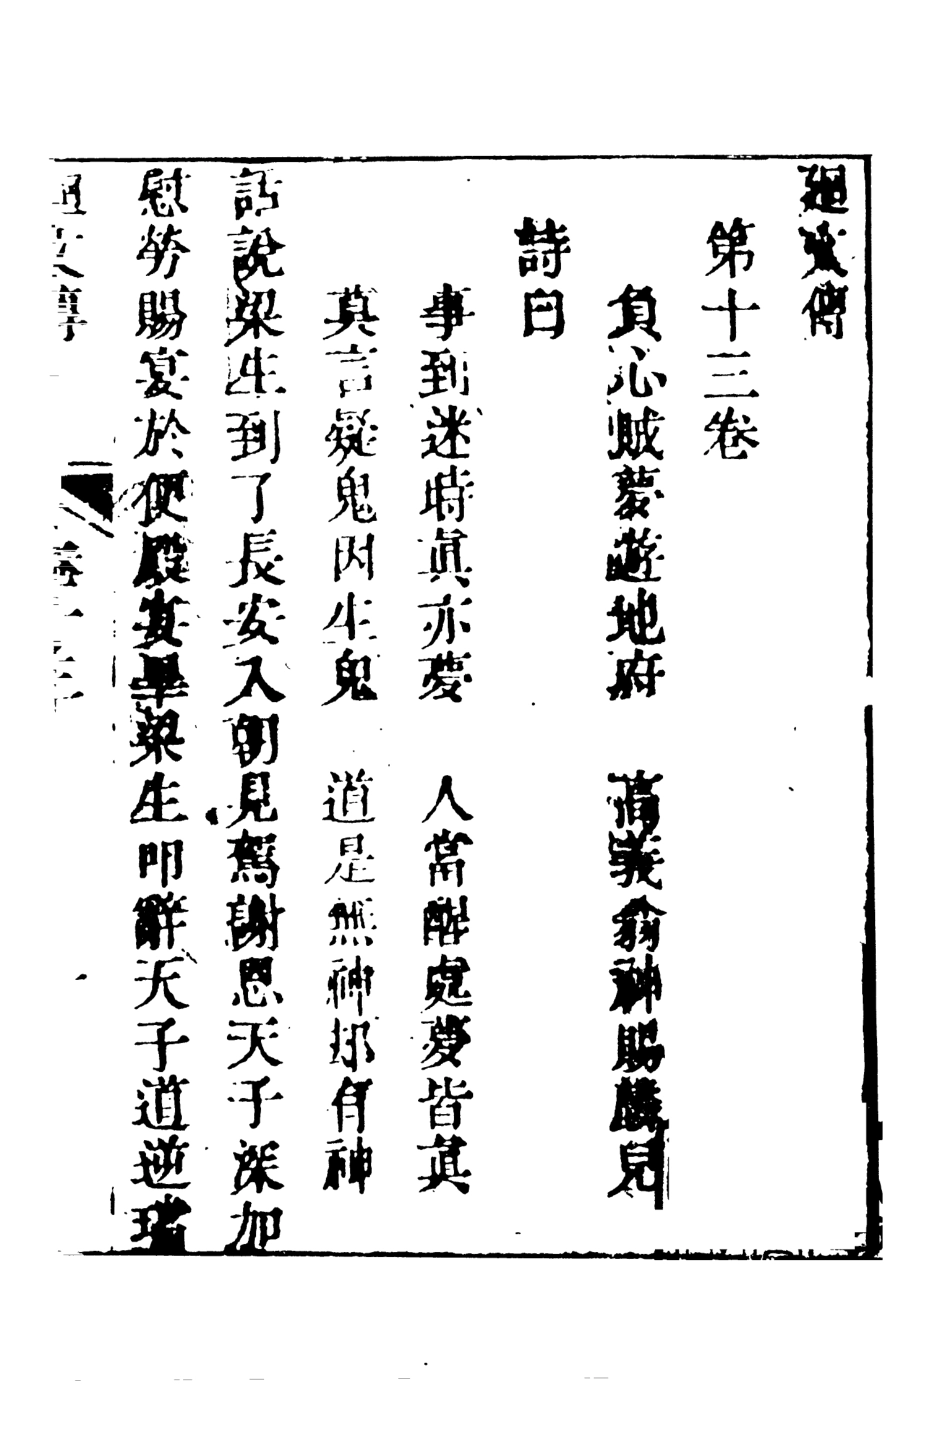 廻文傳
第十三卷
負心賊夢遊地府　高義翁神賜麟兒
詩曰
事到迷時眞亦夢　人當醒處夢皆眞
莫言疑鬼因生鬼　道是無神却有神
話說梁生到了長安入朝見駕謝恩天子深加
慰勞賜宴於便殿宴畢梁生叩辭天子道逆璫
廻文傳　卷十三